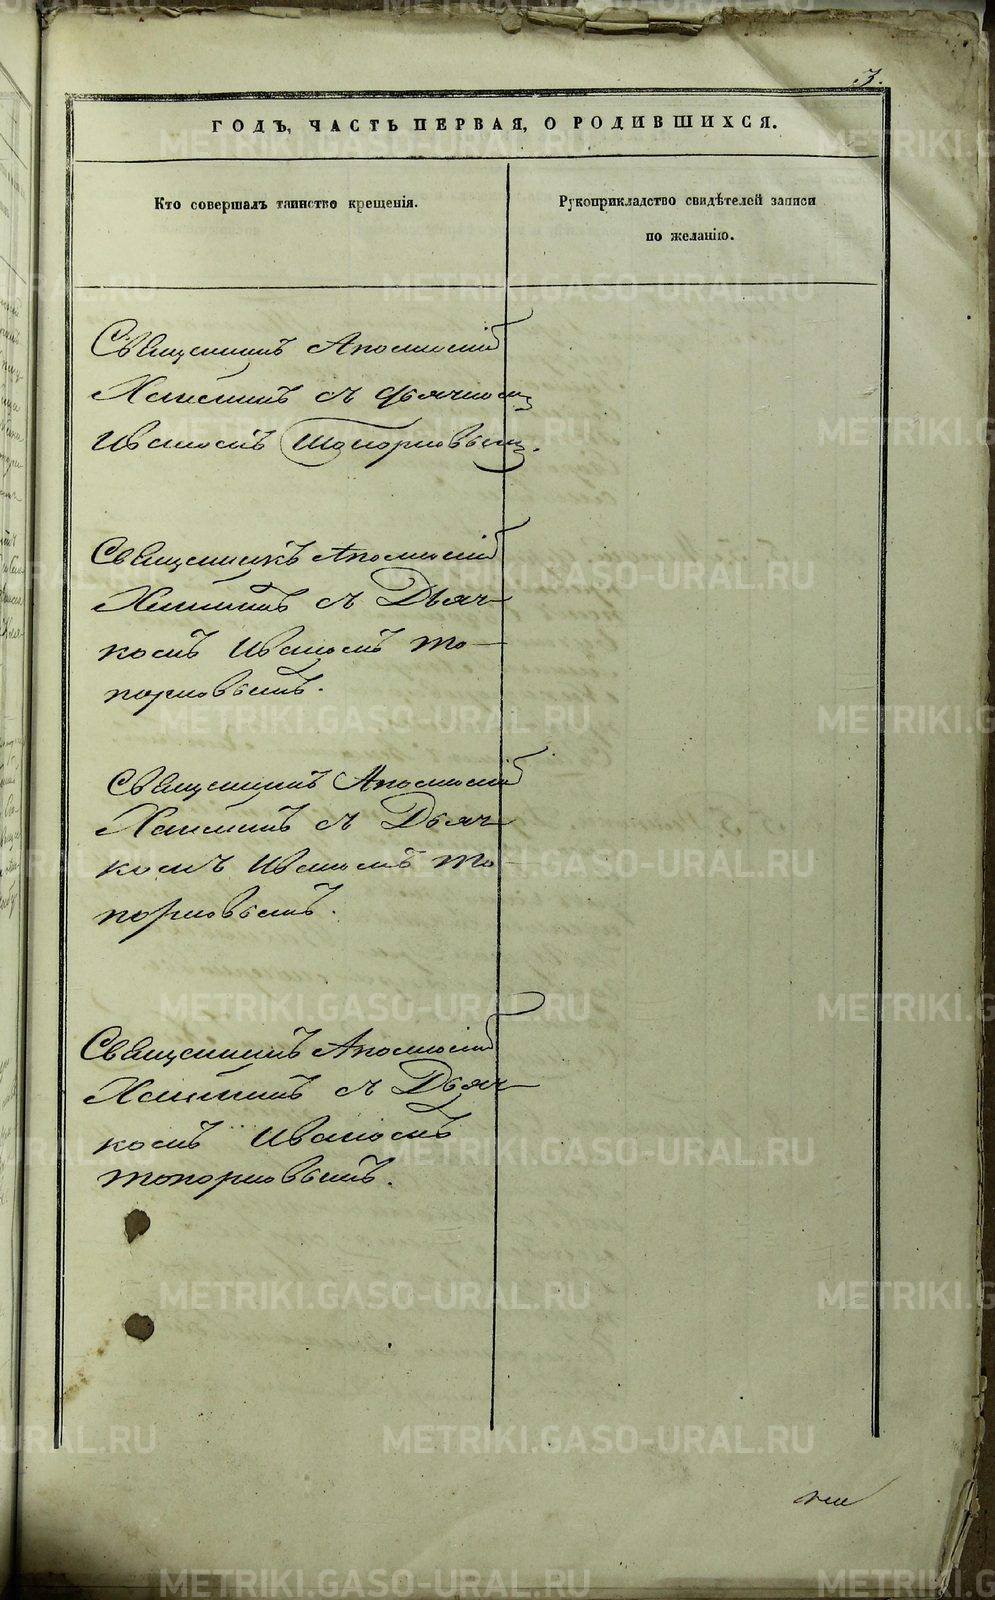 3.
ГОДЪ, ЧАСТЬ ПЕРВАЯ, О РОДИВШИХСЯ.
Кто совершалъ таинство крещенія.
Рукоприкладство свидѣтелей записи
по желанію.
Священникъ Аполлоній
съ дьячкомъ
Иваномъ Топорковымъ.
Священникъ Аполлоній
съ Дьяч-
комъ Иваномъ То-
порковымъ.
Священникъ Аполлоній
съ Дьяч-
комъ Иваномъ То-
порковымъ.
Священникъ Аполлоній
съ Дьяч-
комъ Иваномъ
Топорковымъ.
METRIKI.GASO-URAL.RU